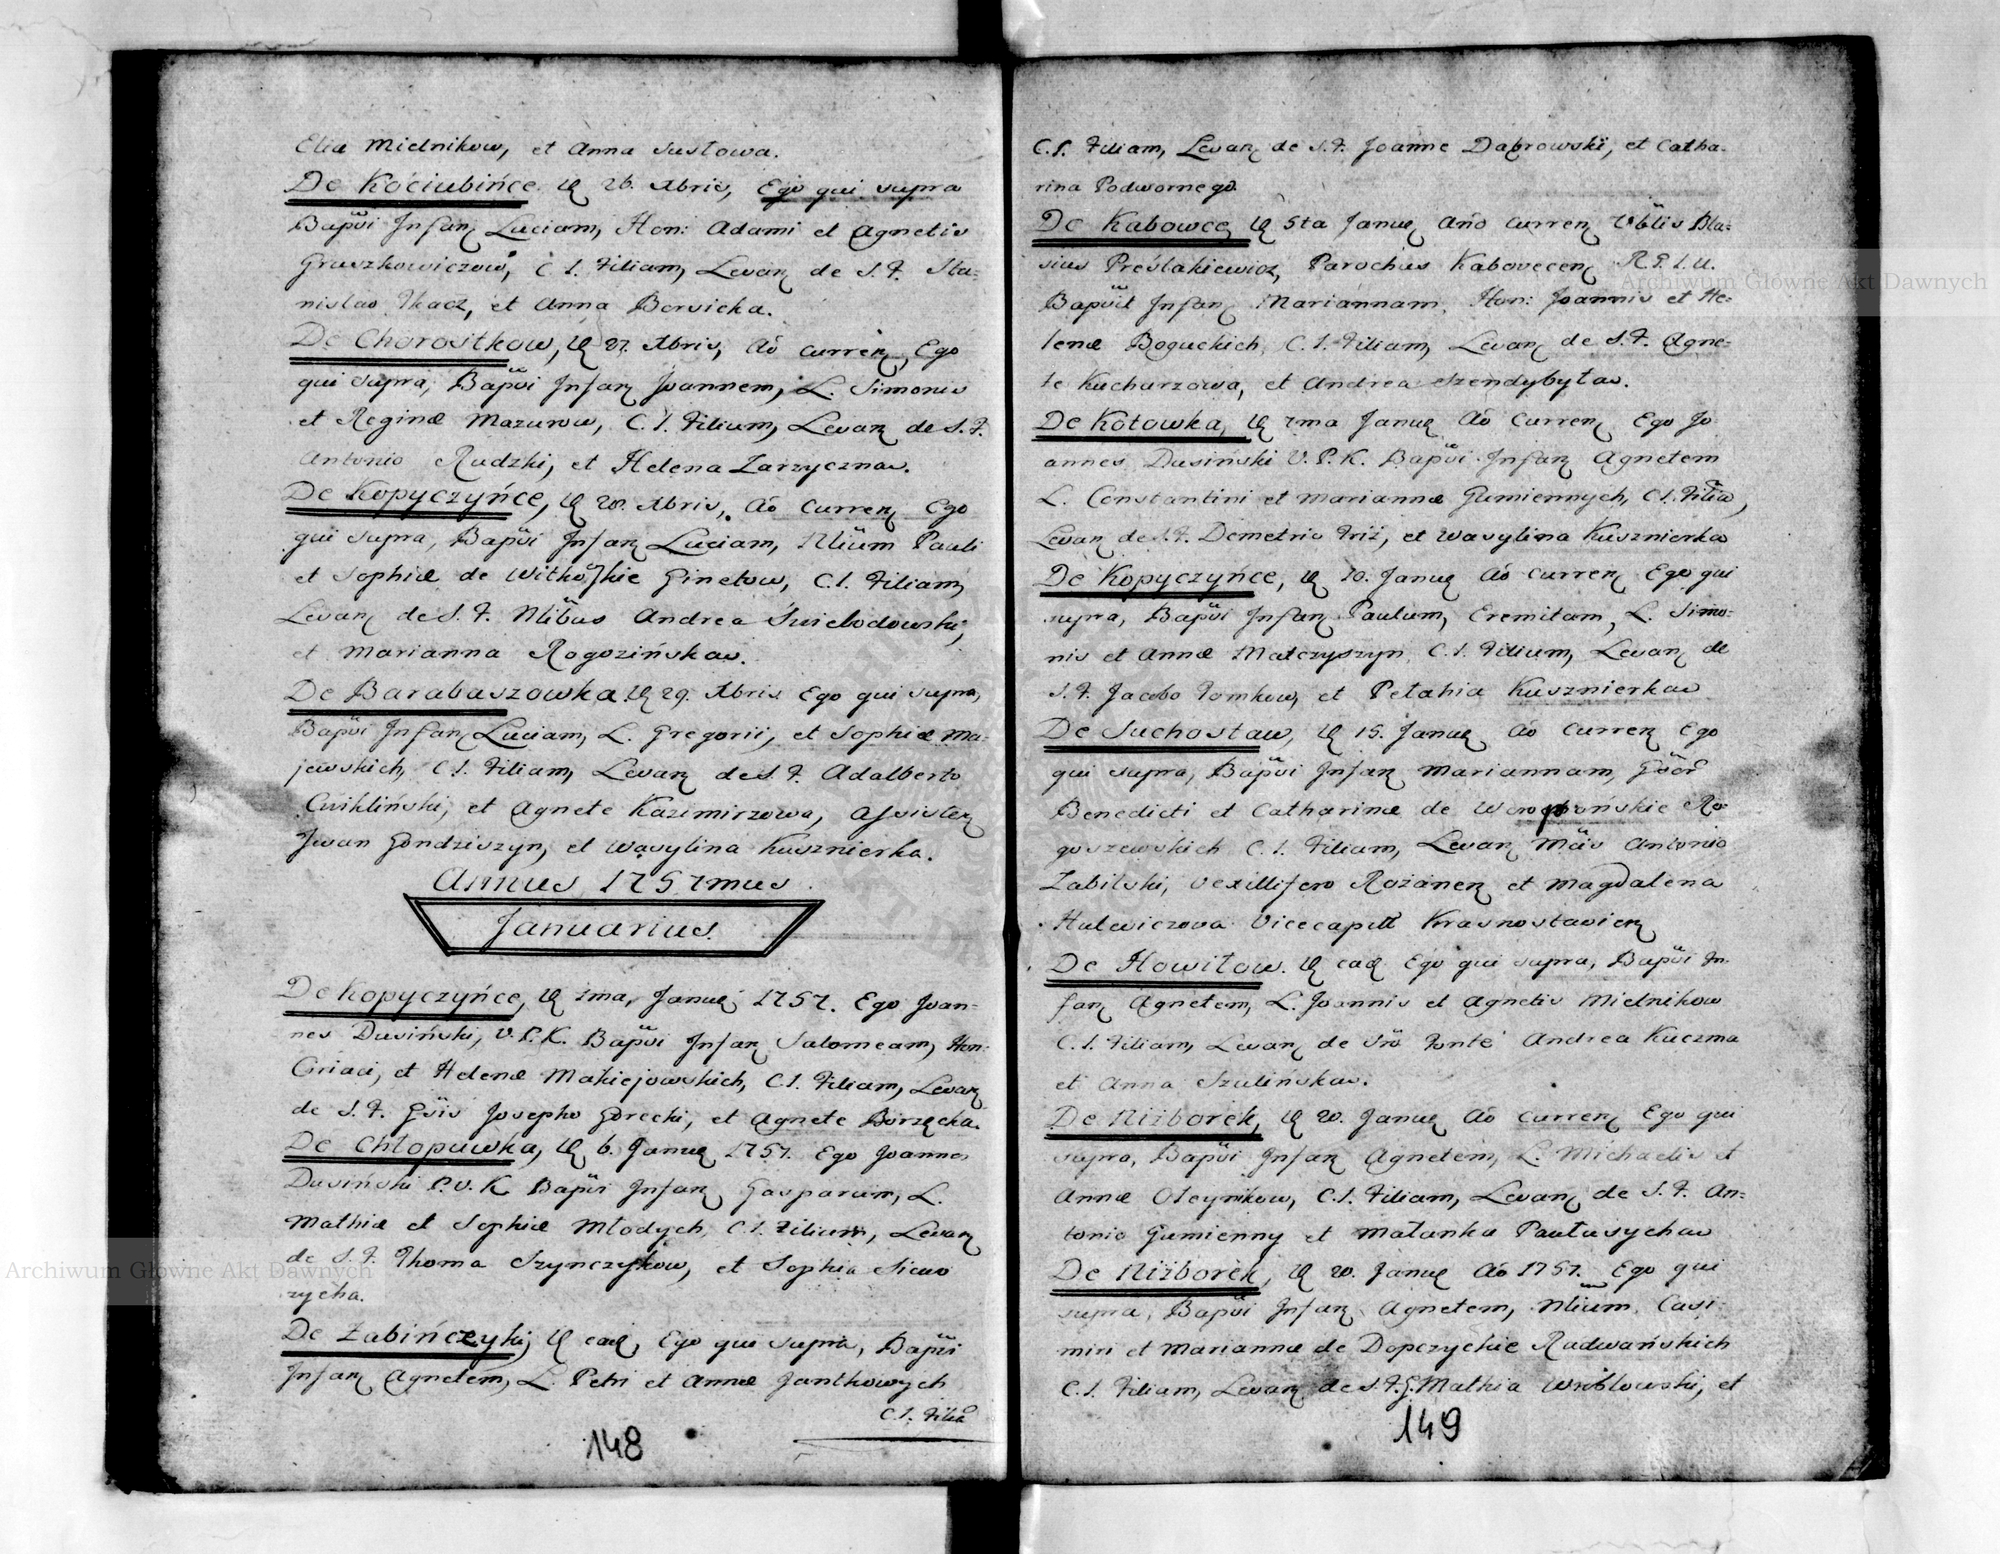 Elia Mielnikow, et Anna Susłowa.
De Kociubińce. 26. Xbris, Ego qui supra
Bapvi Infan Luciam, Hon: Adami et Agnetis
Gruszkowiczow, C. I. Filiam, Levan de S. F. Sta-
nislao Tkacz, et Anna Bersicka.
De Chorostkow, 27. Xbris, Aō curren, Ego
qui supra, Bapvi Infan Joannem, L. Simonis
et Reginæ Mazurow, C. I. Filium, Levan de S. F.
Antonio Rudzki, et Helena Zarzyczna.
De Kopyczyńce, Xbris, Aō curren Ego
qui supra, Bapvi Infan Luciam, Nlium Pauli
et Sophiæ de Ginetow, C. I. Filiam,
Levan de S. F. Nlibus Andrea Swiebodowski,
et Marianna Rogozińska.
De Barabaszowka. 29. Xbris Ego qui supra,
Bapvi Infan Luciam, L. Gregorii, et Sophiæ Ma-
jewskich, C. I. Filiam, Levan de S. F. Adalberto
Cwikliński, et Agnete Kazimirzowa, Assisten
Iwan Gondziszyn, et Wasylina Kusznierka.
Annus 1757mus.
Januarius.
De Kopyczyńce, 1ma, Janu 1757. Ego Joan-
nes Dusiński, V. P. K. Bapvi Infan Salomeam, Hon:
Ciriaci, et Helenæ Makiejowskich, C. I. Filiam, Levan
de S. F. Gsis Josepho Gorecki, et Agnete Borzęcka.
De Chłopuwka, 6. Janu 1757. Ego Joannes
Dusiński P. V. K Bapvi Infan Gasparum, L.
Mathiæ et Sophiæ Młodych, C. I. Filium, Levan
de S. F. Thoma Szynczykow, et Sophia Siewo
rycha.
De Żabińczyki, ead, Ego qui supra, Bapvi
Infan Agnetem, L. Petri et Annæ Jantkowych
C. I. Filia
148
C. I. Filiam, Levan de S. F. Joanne Dąbrowski, et Catha-
rina Podwornego.
De Kabowce 5ta Janu Año curren Vblis Bla-
sius Preslakiewicz, Parochus Kabovecen R. P. I. U.
Bapvit Infan Mariannam, Hon: Joannis et He-
lenæ Boguckich, C. I. Filiam, Levan de S. F. Agne-
te Kucharzowa, et Andrea Szendybyła.
De Kotowka, 7ma Janu Aō Curren Ego Jo
annes Dusiński V. P. K. Bapvi Infan Agnetem
L. Constantini et Mariannæ Gumiennych, C. I. Filia,
Levan de S. F. Demetrio Friz, et Wasylina Kusznierka
De Kopyczyńce, 10. Janu Aō curren Ego qui
supra, Bapvi Infan Paulum, Eremitam, L. Simo-
nis et Annæ Matczyszyn, C. I. Filium, Levan de
S. F. Jacobo Tomkow, et Petahia Kusznierka
De Suchostaw, 15. Janu Aō Curren Ego
qui supra, Bapvi Infan Mariannam,
Benedicti et Catharinæ de Ro-
goszewskich C. I. Filiam, Levan Antonio
Zabilski, Vexillifero Rożanen et Magdalena
Hulewiczowa Vicecapitt Krasnostavien
De Howiłow. ead Ego qui supra, Bapvi In-
fan Agnetem, L. Joannis et Agnetis Mielnikow
C. I. Filiam, Levan de Sro Fonte Andrea Kuczma
et Anna Szulińska.
De Niżborek, 20. Janu Aō curren Ego qui
supra, Bapvi Infan Agnetem, L. Michaelis et
Annæ Oleynikow, C. I. Filiam, Levan de S. F. An-
tonio Gumienny et Małanka Pawłusycha
De Niżborek, 20. Janu Aō 1757. Ego qui
supra, Bapvi Infan Agnetem, Nlium Casi-
miri et Mariannæ de Dopczyckie Radwańskich
C. I. Filiam, Levan de S. F. G. Mathia Wriblowski, et
149
Archiwum Główne Akt Dawnych
Archiwum Główne Akt Dawnych